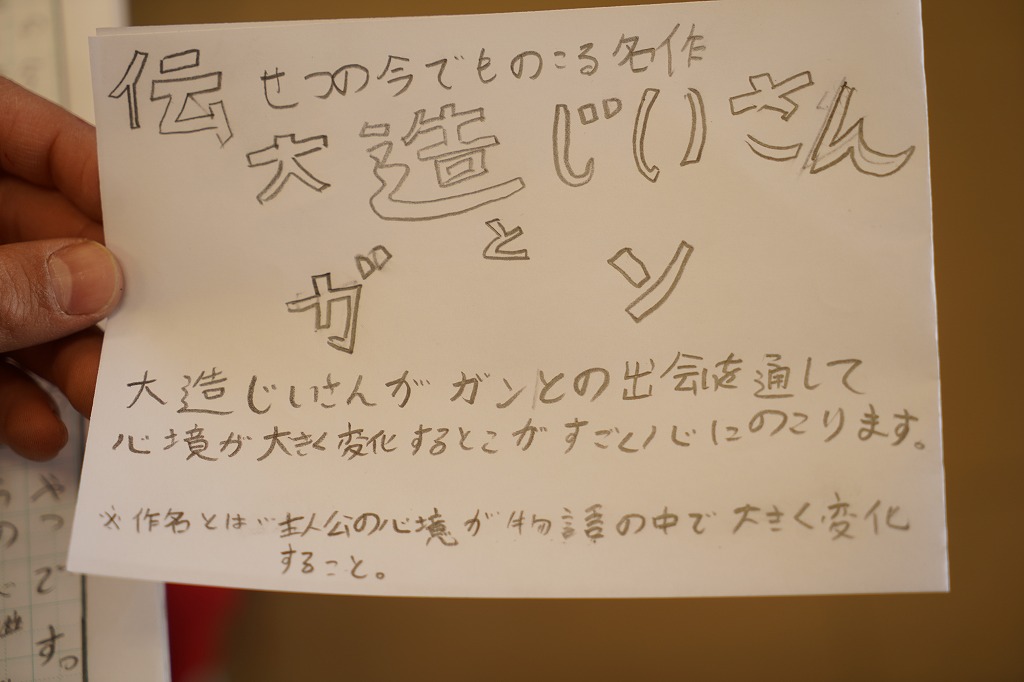 伝せつの今でものこる名作
大造じいさん
と
ガン
大造じいさんがガンとの出会いを通して
心境が大きく変化するとこがすごく心にのこります。
※作名とは…主人公の心境が物語の中で大きく変化
すること。
やつです。